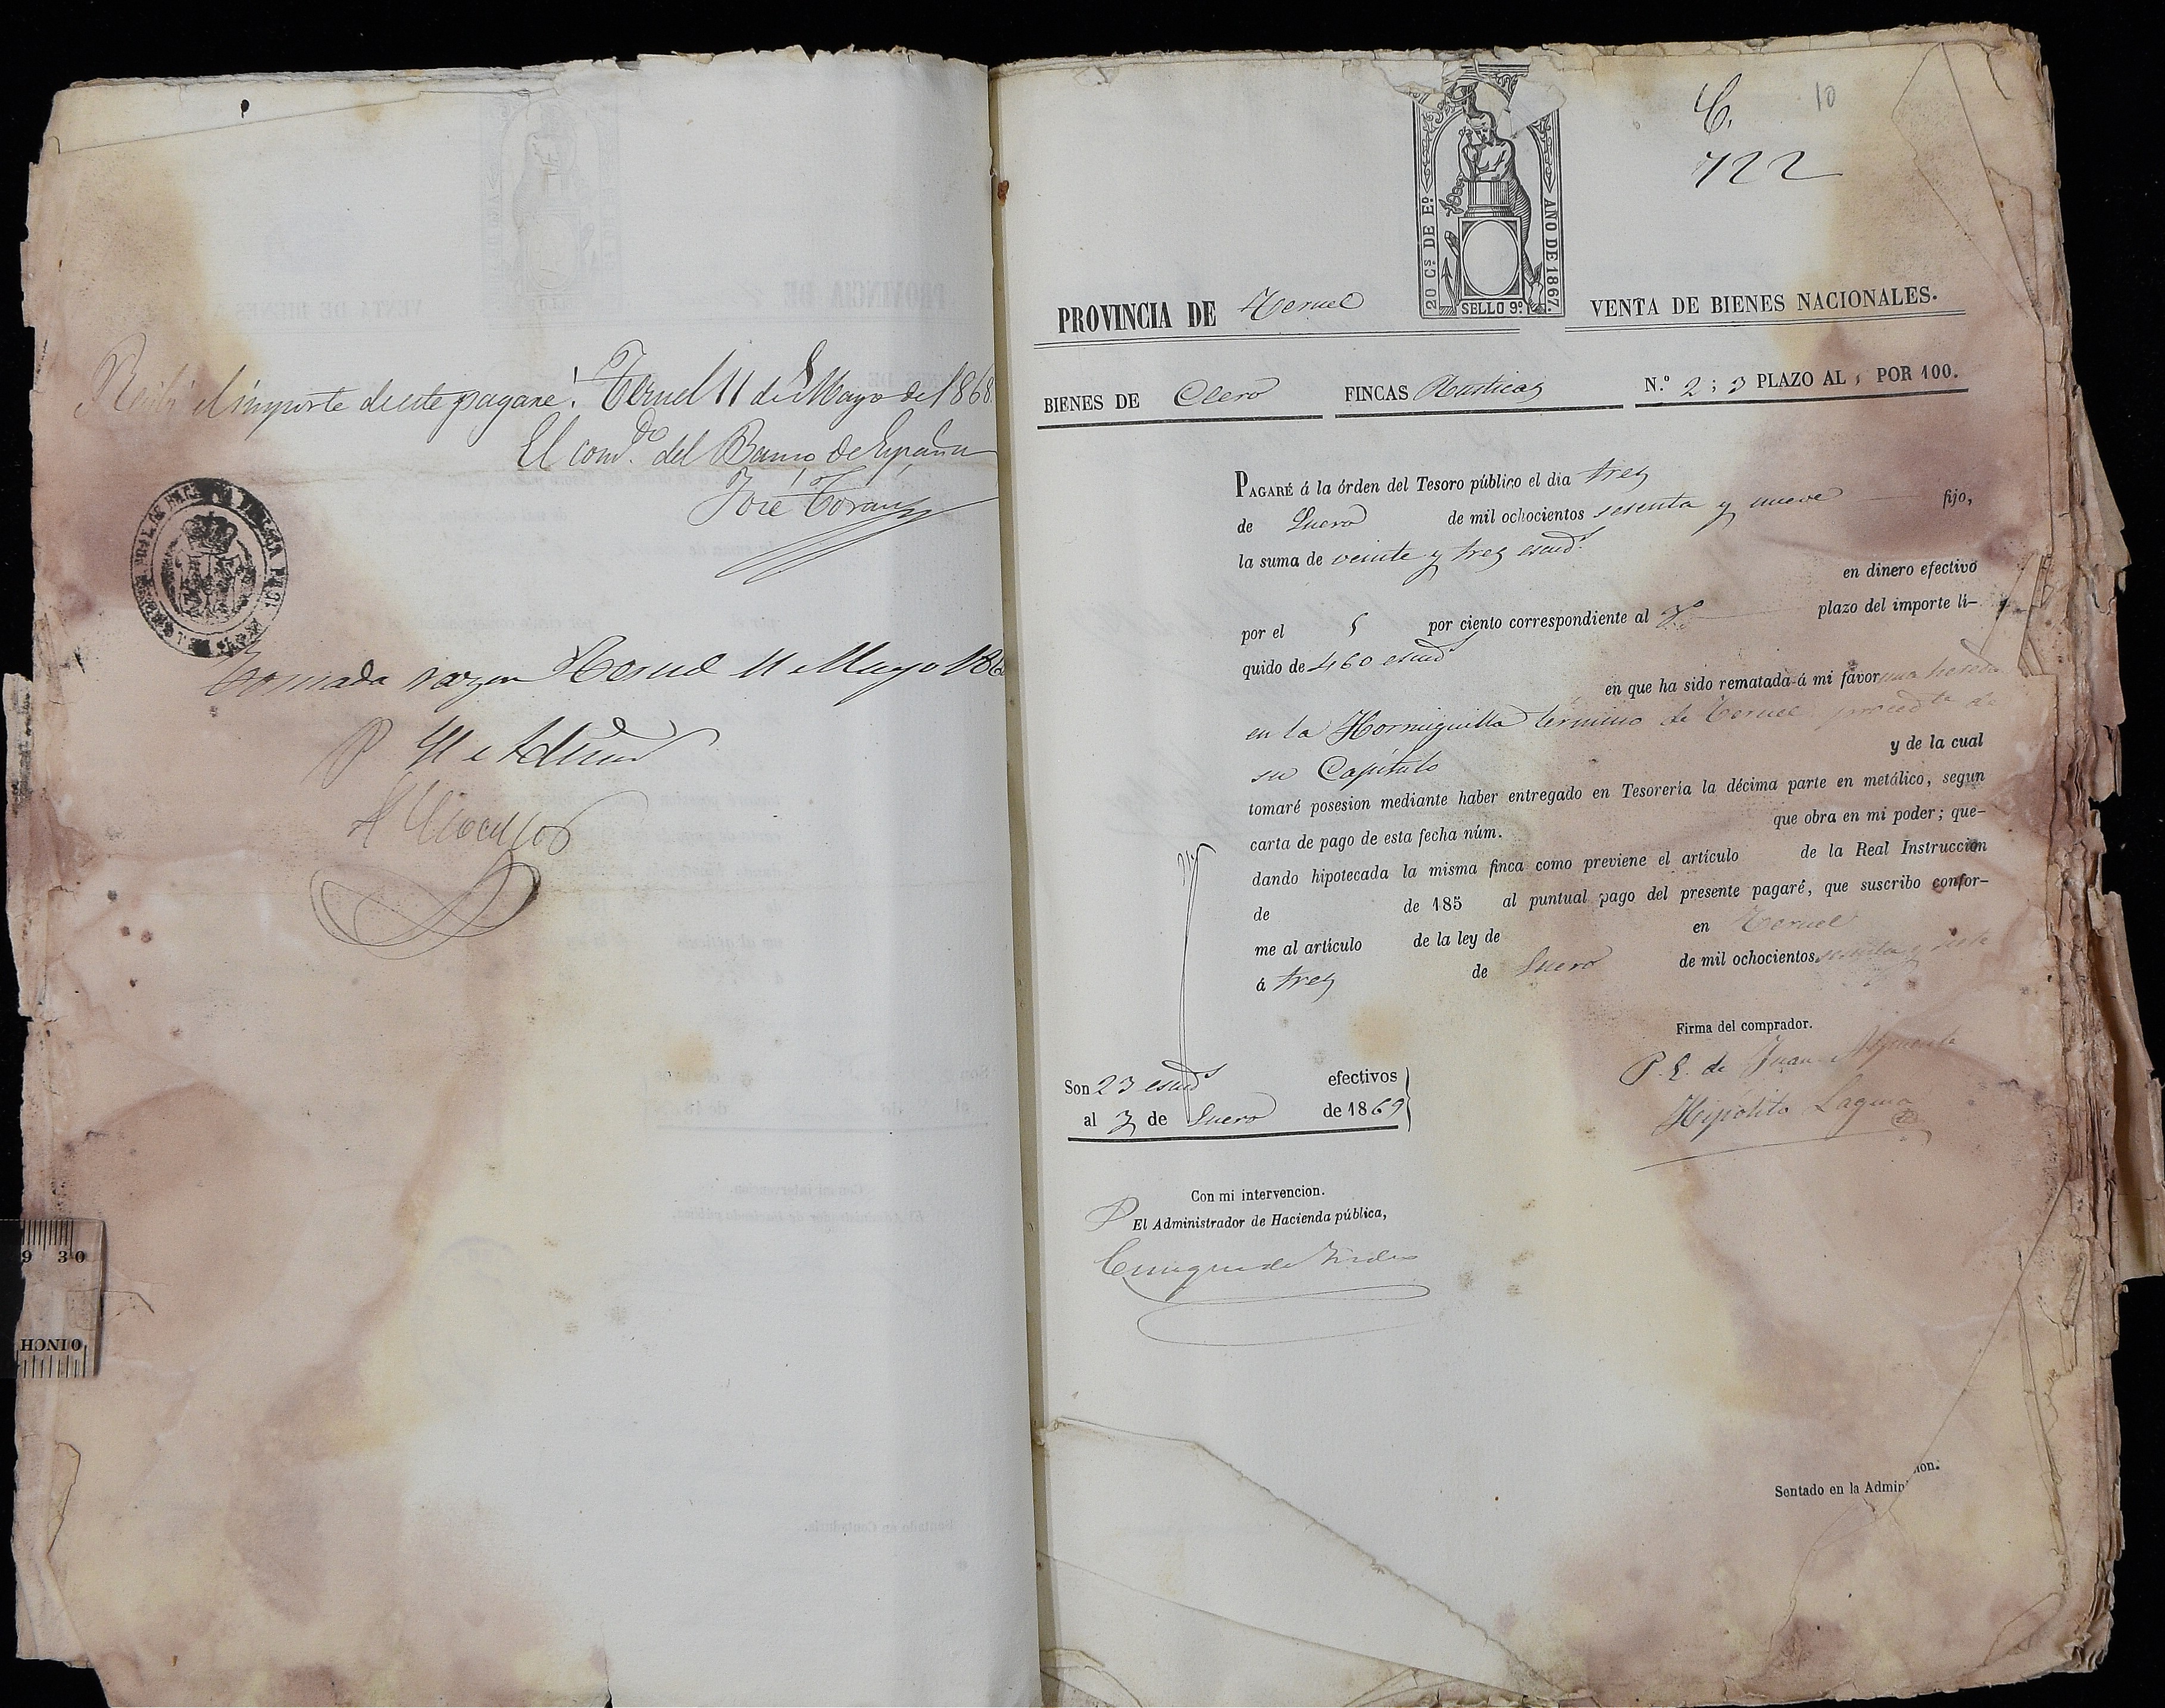 Recibí el importe de este pagaré. Teruel 11 de Mayo de 1868
El com.do del Banco de España
José Torán
Tomada razon Teruel 11 Mayo 186
P
C.
10
722
20 Cs. DE Eo.
AÑO DE 1867.
SELLO 9.º
PROVINCIA DE Teruel
VENTA DE BIENES NACIONALES.
BIENES DE Clero FINCAS Rusticas N.º 2; 3 PLAZO AL 5 POR 100.
PAGARÉ á la órden del Tesoro público el dia tres
de Enero de mil ochocientos sesenta y nueve fijo,
la suma de veinte y tres escud.s
en dinero efectivo
por el 5 por ciento correspondiente al 3.º plazo del importe lí-
quido de 460 escud.s
en que ha sido rematada á mi favor una hered
en la Hormiguilla termino de Teruel proced.te de
su Capitulo y de la cual
tomaré posesion mediante haber entregado en Tesorería la décima parte en metálico, segun
carta de pago de esta fecha núm. que obra en mi poder; que-
dando hipotecada la misma finca como previene el artículo de la Real Instruccion
de de 185 al puntual pago del presente pagaré, que suscribo confor-
me al artículo de la ley de en Teruel
á tres de Enero de mil ochocientos sesenta y siete
Firma del comprador.
P. E. de Juan
Hipolito Laguia
Son 23 escud.s efectivos
al 3 de Enero de 1869
Con mi intervencion.
P El Administrador de Hacienda pública,
Sentado en la Admin ion.
9 30
0 INCH